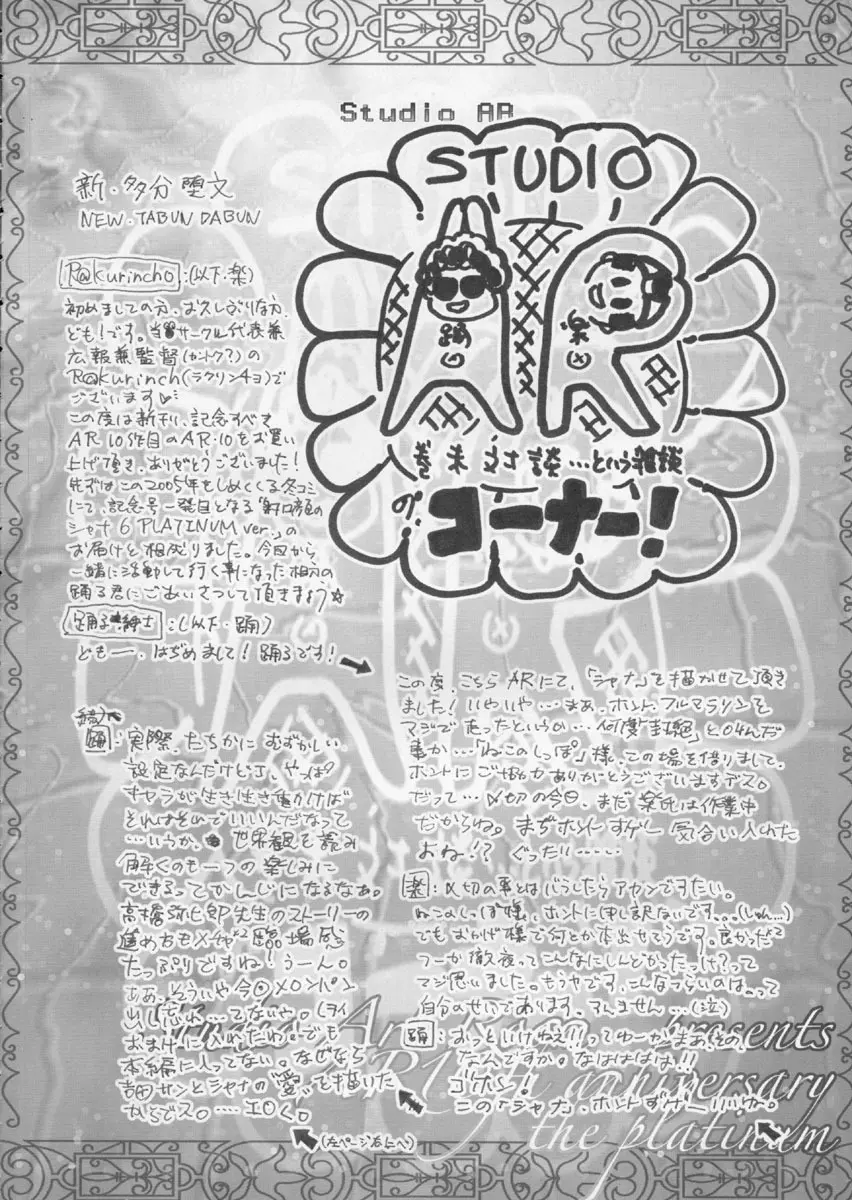 Studio AR
新・多分堕文
NEW・TABUN DABUN
STUDIO
AR
踊
楽
巻末対談…という雑談
の、コーナー!
R@kurincho:(以下・楽)
初めましての方、お久しぶりな方、
ども!です。当サークル代表兼
広報兼監督(カントク?)の
R@kurinch(ラクリンチョ)で
ございます
この度は新刊、記念すべき
AR 10作目のAR・10をお買い
上げ頂き、ありがとうございました!
先ずはこの2005年をしめくくる冬コミ
にて、記念号一発目となる「射口顔の
シャナ6 PLATINUM ver.」の
お届けと相成りました。今回から
一緒に活動して行く事になった相方の
踊る君にごあいさつして頂きましょう☆
踊る紳士:(以下・踊)
ども一、はぢめまして!踊るです!
この度、こちらARにて、「シャナ」を描かせて頂き
ました!いやいや…まあ、ホント、フルマラソンを
マジで走ったというか…何度
事か…「ねこのしっぽ」様、この場を借りまして。
ホントにご協力ありがとうございますデス。
だって…〆切の今日、まだ楽氏は作業中
だからね。まぢホントすげー気合い入れた
おね!?ぐったり……
楽:〆切の事とはバラしたらアカンですたい。
ねこのしっぽ様、ホントに申し訳ないです…(しゅん…)
でもおかげ様で何とか本出せそうです。良かった2
つーか徹夜ってこんなにしんどかったっけ?って
マジ思いました。もうヤです、こんなつらいのは…って
自分のせいであります。すんません…(泣)
踊:おっといけねえ!!ってゆーか、まあ、その、
なんですか。なはははは!!
ゴホン!
この「シャナ」、ホントすげー
踊:実際、たちかにむずかしい
設定なんだけどさ、やっぱ
キャラが生き生き動かけば
それはそのでいいんだなって
…いうか、世界観を読み
解くのも一つの楽しみに
できるってかんじになるなぁ。
高橋弥七郎先生のストーリーの
進め方もメチャ2臨場感
たっぷりですね!うーん。
ああ、そういや今回メロンパン
出し忘れ…てないや。(ヲイ
おまけに入れたわ。でも
本編に入ってない。なぜなら
吉田サンとシャナの"愛"を描いた
からでス。…エロく。
(左ページ右上へ)
presents
anniversary
the platinum